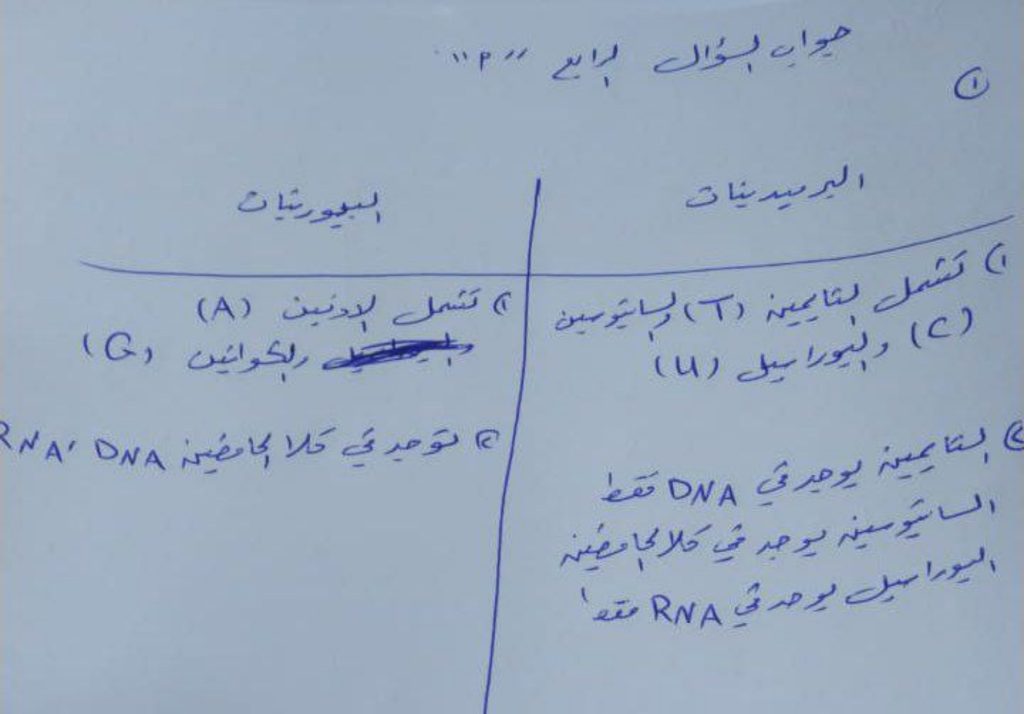 جواب السؤال الرابع "م"
①
البرميدينات
البيورينات
١) تشمل الثايمين (T) والسايتوسين
(C) واليوراسيل (U)
٢) الثايمين يوجد في DNA فقط
السايتوسين يوجد في كلا الحامضين
اليوراسيل يوجد في RNA فقط
١) تشمل الادنين (A)
والكوانين (G)
٢) توجد في كلا الحامضين RNA، DNA